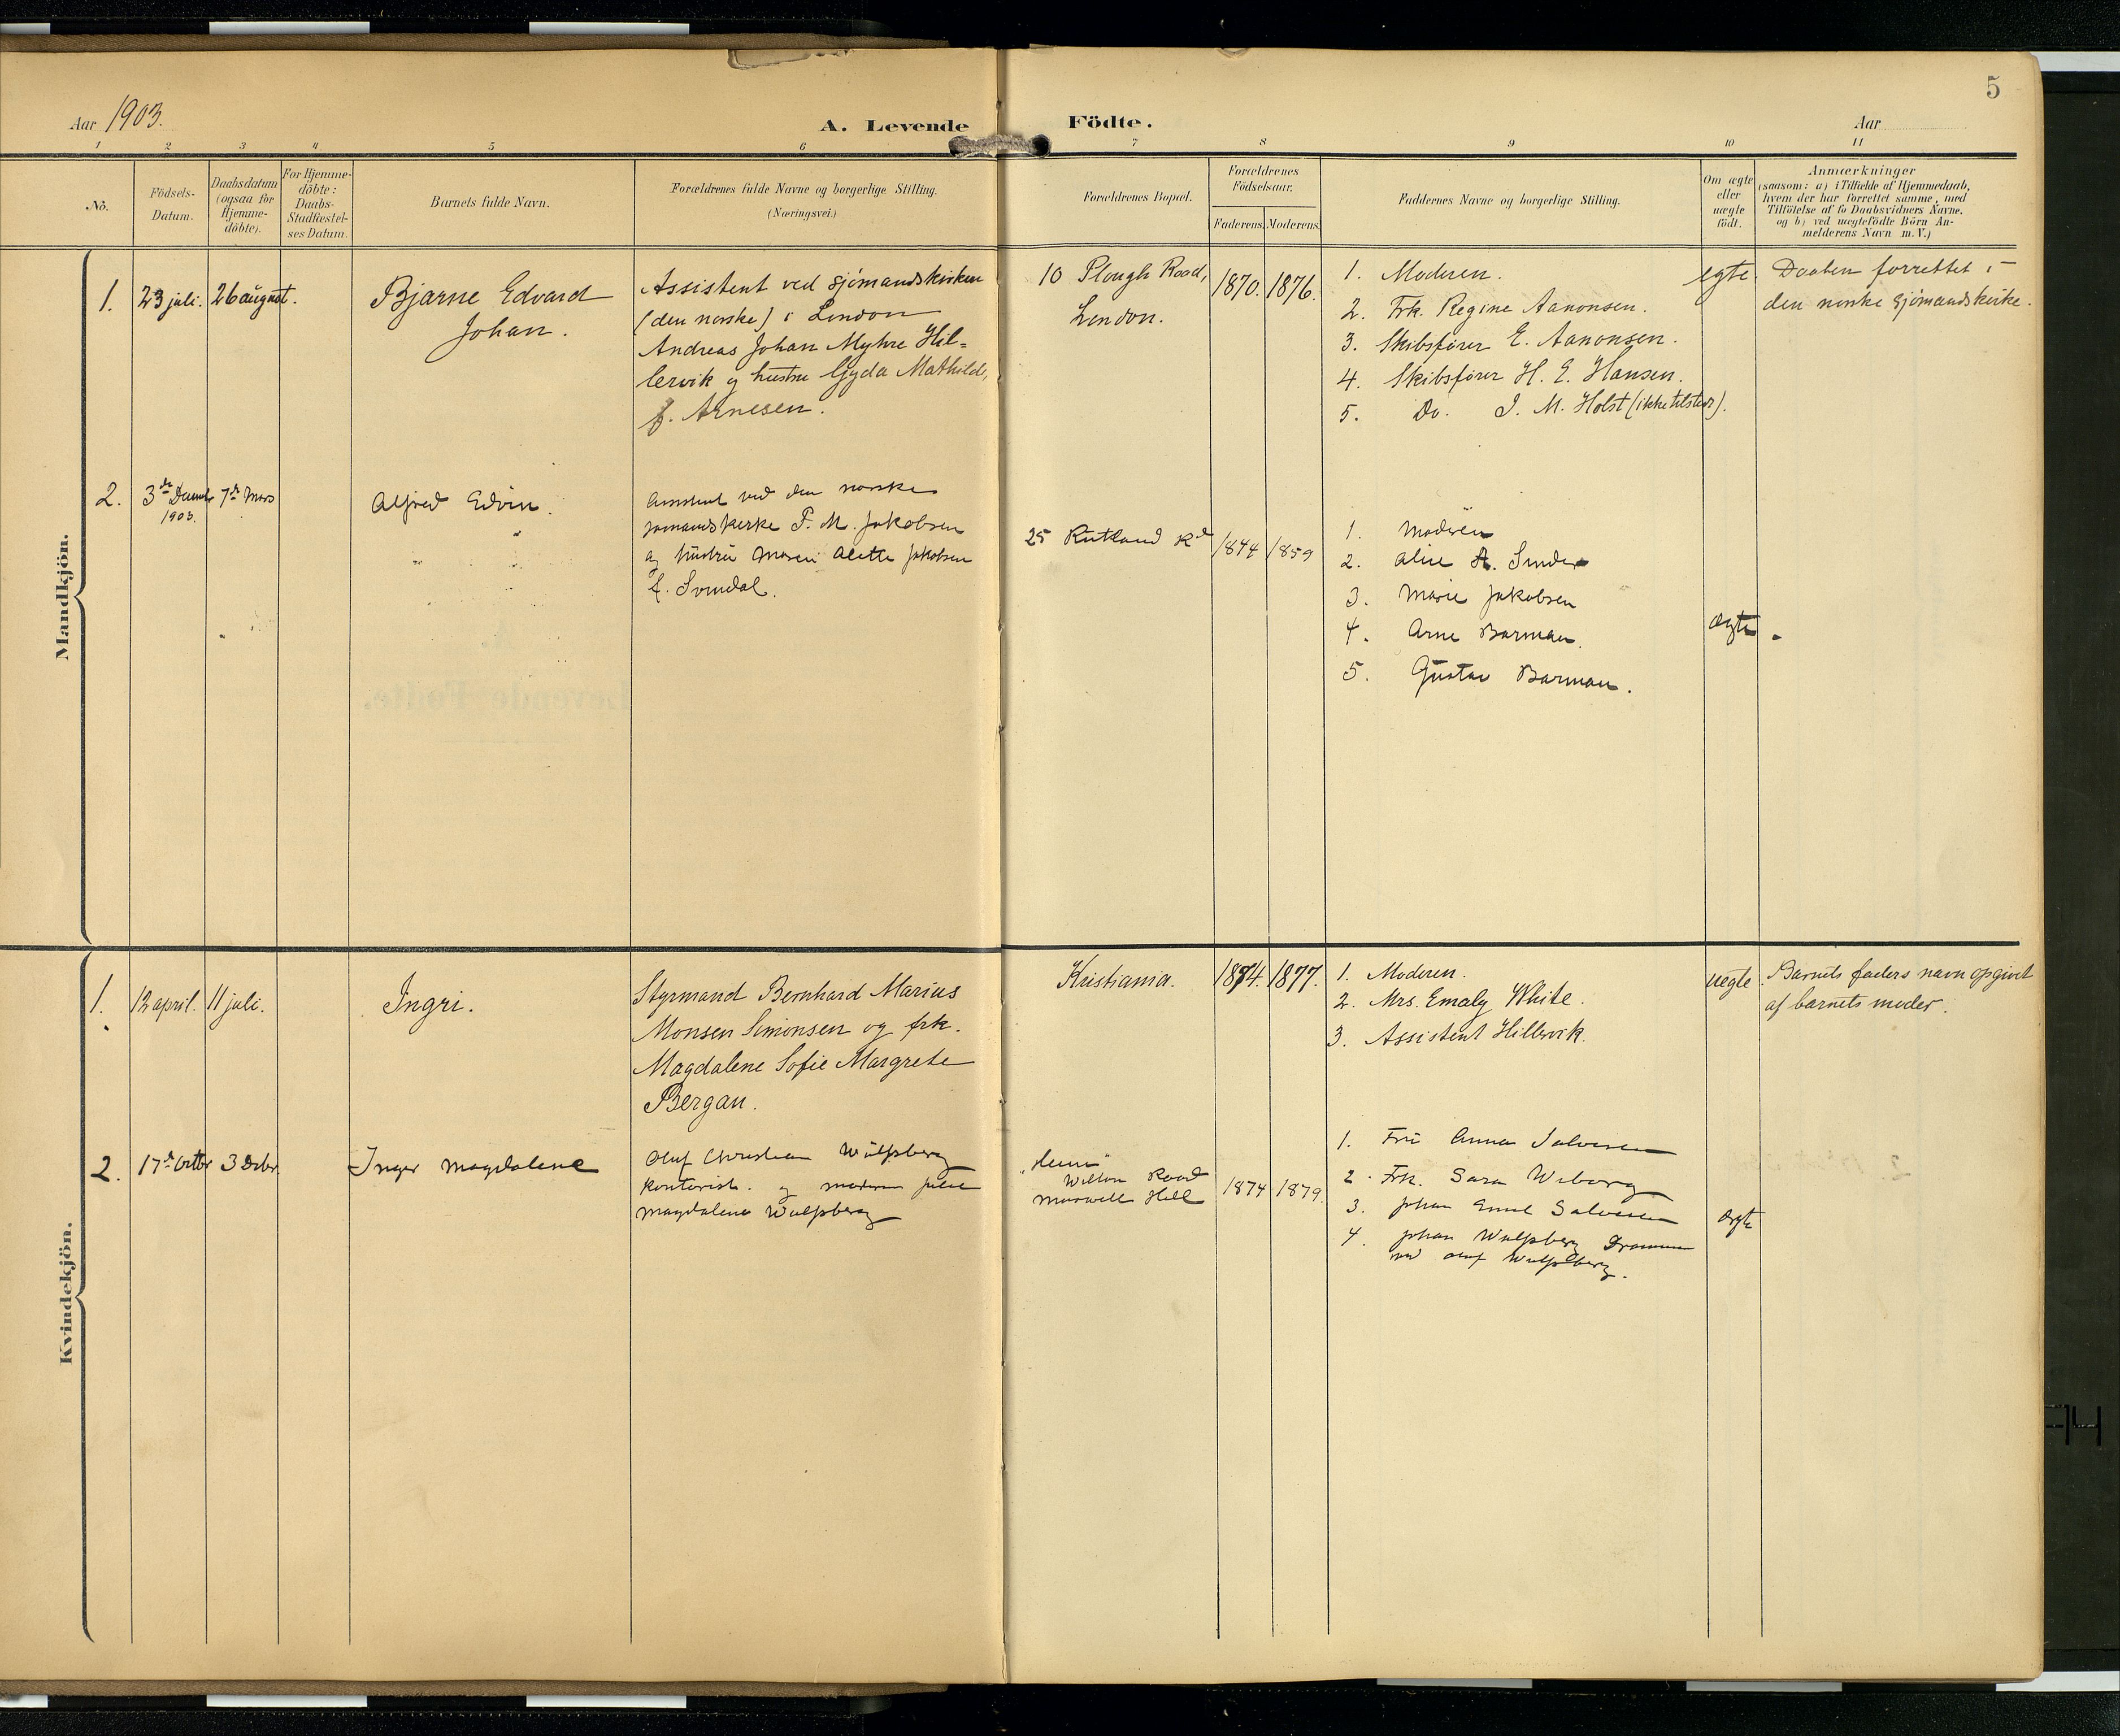 5
Aar 1903.
A. Levende
Födte.
Aar
1 2 3 4 5 6 7 8 9 10 11
No.
Födsels-
Datum.
Daabsdatum
(ogsaa for
Hjemme-
döbte).
For Hjemme-
döbte:
Daabs-
Stadfæstel-
ses Datum.
Barnets fulde Navn.
Forældrenes fulde Navne og borgerlige Stilling.
(Næringsvei.)
Forældrenes Bopæl.
Forældrenes
Födselsaar.
Faderens. Moderens.
Faddernes Navne og borgerlige Stilling.
Om ægte
eller
uægte
födt.
Anmærkninger
(saasom: a) i Tilfælde af Hjemmedaab,
hvem der har forrettet samme, med
Tilföielse af to Daabsvidners Navne,
og b) ved uægtefödte Börn An-
melderens Navn m. V.)
Mandkjön.
1.
23 juli.
26 august.
Bjarne Edvard
Johan.
Assistent ved sjömandskirken
(den norske) i London
Andreas Johan Myhre Hil-
lervik og hustru Gyda Mathilde,
f. Arnesen.
10 Plough Road,
London.
1870.
1876.
1. Moderen.
2. Frk. Regine Aanonsen.
3. Skibsförer E. Aanonsen.
4. Skibsförer H. E. Hansen.
5. Do. J. M. Holst (ikke tilstede).
egte.
Daaben forrettet i
den norske sjömandskirke.
2.
3de Decembr
1903.
7de Mars
Alfred Edvin.
Assistent ved den norske
sömandskirke F. M. Jakobsen
og hustru Maren Alette Jakobsen
f. Svendal.
25 Rutland Rd
1844
1859
1. Moderen
2. Alice A.
3. Marie Jakobsen
4. Arne Barman.
5. Gustav Barman.
ægte
Kvindekjön.
1.
12 april.
11 juli.
Ingri.
Styrmand Bernhard Marius
Monsen Simonsen og frk.
Magdalene Sofie Margrete
Bergan.
Kristiania.
1874.
1877.
1. Moderen.
2. Mrs. Emaly White.
3. Assistent Hillervik.
uegte
Barnets faders navn opgivet
af barnets moder.
2.
17de Octbr
3 Decbr.
Inger Magdalene
Oluf Christian Wulfsberg
Kontorist. og moderen Julie
Magdalene Wulfsberg
Wilton Road
Muswell Hill
1874
1879.
1. Fru Anna Salvesen
2. Frk. Sara Wiborg
3. Johan Emil Salvesen
4. Johan Wulfsberg Drammen
ved Oluf Wulfsberg.
ægte